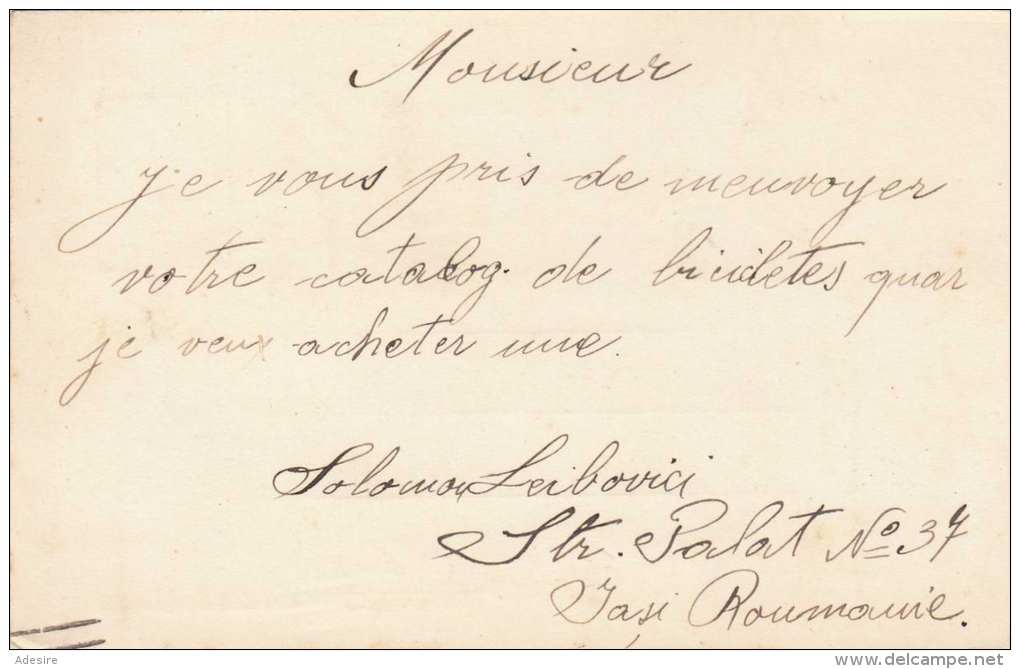 Monsieur
je vous pris de menvoyer
votre catalog de bicicletes quar
je veux acheter une.
Solomon Leibovici
Str. Palat No 37
Iași Roumanie.
Adesire
www.delcampe.net